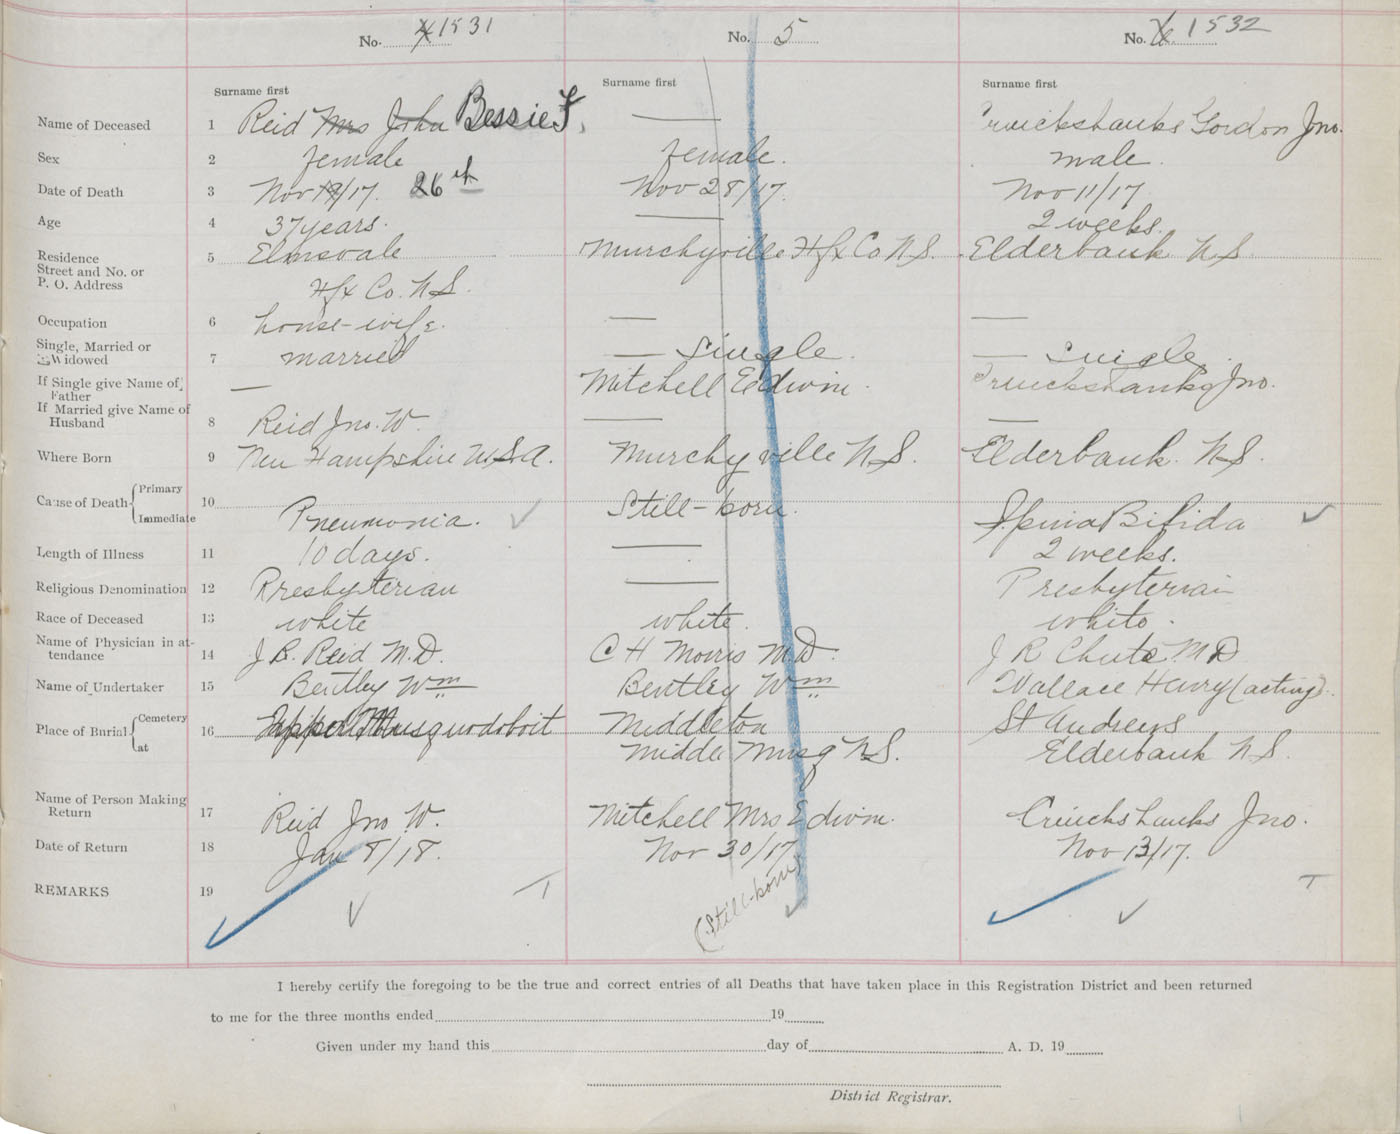 No. 4 1531
No. 5
No. 6. 1532
Surname first
Surname first
Surname first
Name of Deceased 1 Reid Mrs John Bessie F. — Cruickshanks Gordon Jno.
Sex 2 female female. male.
Date of Death 3 Nov /17. 26th Nov 28/17. Nov 11/17
Age 4 37 years. — 2 weeks.
Residence 5 Elmsvale Murchyville Hfx Co N.S. Elderbank N.S.
Street and No. or
P. O. Address Hfx Co. N.S.
Occupation 6 house-wife. — —
Single, Married or
Widowed 7 married — Single. — Single.
If Single give Name of
Father — Mitchell Edwin. Cruickshanks Jno.
If Married give Name of
Husband 8 Reid Jno. W. — —
Where Born 9 New Hampshire U.S.A. Murchyville N.S. Elderbank N.S.
Cause of Death Primary
Immediate 10 Pneumonia. Still-born. Spina Bifida
Length of Illness 11 10 days. — 2 weeks.
Religious Denomination 12 Presbyterian — Presbyterian
Race of Deceased 13 white white. white.
Name of Physician in at-
tendance 14 J. R. Reid M.D. C H Morris M.D. J R Chute M D
Name of Undertaker 15 Bentley Wm Bentley Wm Wallace Henry (acting).
Place of Burial Cemetery
at 16 Upper Musquodoboit Middleton St Andrews
Middle Musq N.S. Elderbank N.S.
Name of Person Making
Return 17 Reid Jno W. Mitchell Mrs Edwin. Cruickshanks Jno.
Date of Return 18 Jan 8/18. Nov 30/17 Nov 13/17.
REMARKS 19
(Still-born)
I hereby certify the foregoing to be the true and correct entries of all Deaths that have taken place in this Registration District and been returned
to me for the three months ended 19
Given under my hand this day of A. D. 19
District Registrar.